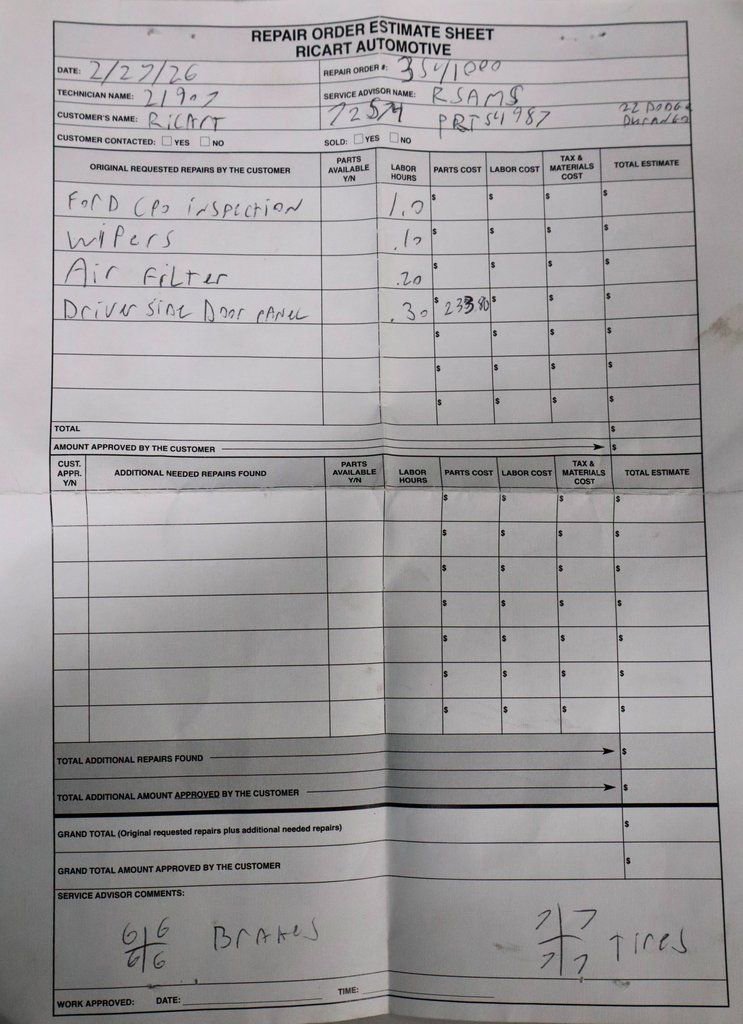 REPAIR ORDER ESTIMATE SHEET
RICART AUTOMOTIVE
DATE: 2/27/26
REPAIR ORDER #: 3541000
TECHNICIAN NAME: 21907
SERVICE ADVISOR NAME: RSAMS
CUSTOMER'S NAME: RicArT
72574 PRT54987 22 DODGE DURANGO
CUSTOMER CONTACTED: YES NO
SOLD: YES NO
ORIGINAL REQUESTED REPAIRS BY THE CUSTOMER PARTS AVAILABLE Y/N LABOR HOURS PARTS COST LABOR COST TAX & MATERIALS COST TOTAL ESTIMATE
Ford CPO inspection 1.0 $ $ $ $
Wipers .10 $ $ $ $
Air Filter .20 $ $ $ $
Driver Side Door panel .30 $ 233.80 $ $ $
$ $ $ $
$ $ $ $
$ $ $ $
TOTAL $
AMOUNT APPROVED BY THE CUSTOMER $
CUST. APPR. Y/N ADDITIONAL NEEDED REPAIRS FOUND PARTS AVAILABLE Y/N LABOR HOURS PARTS COST LABOR COST TAX & MATERIALS COST TOTAL ESTIMATE
$ $ $ $
$ $ $ $
$ $ $ $
$ $ $ $
$ $ $ $
$ $ $ $
$ $ $ $
TOTAL ADDITIONAL REPAIRS FOUND $
TOTAL ADDITIONAL AMOUNT APPROVED BY THE CUSTOMER $
GRAND TOTAL (Original requested repairs plus additional needed repairs) $
GRAND TOTAL AMOUNT APPROVED BY THE CUSTOMER $
SERVICE ADVISOR COMMENTS:
6 6 Brakes 7 7 Tires
6 6 7 7
WORK APPROVED: DATE: TIME: